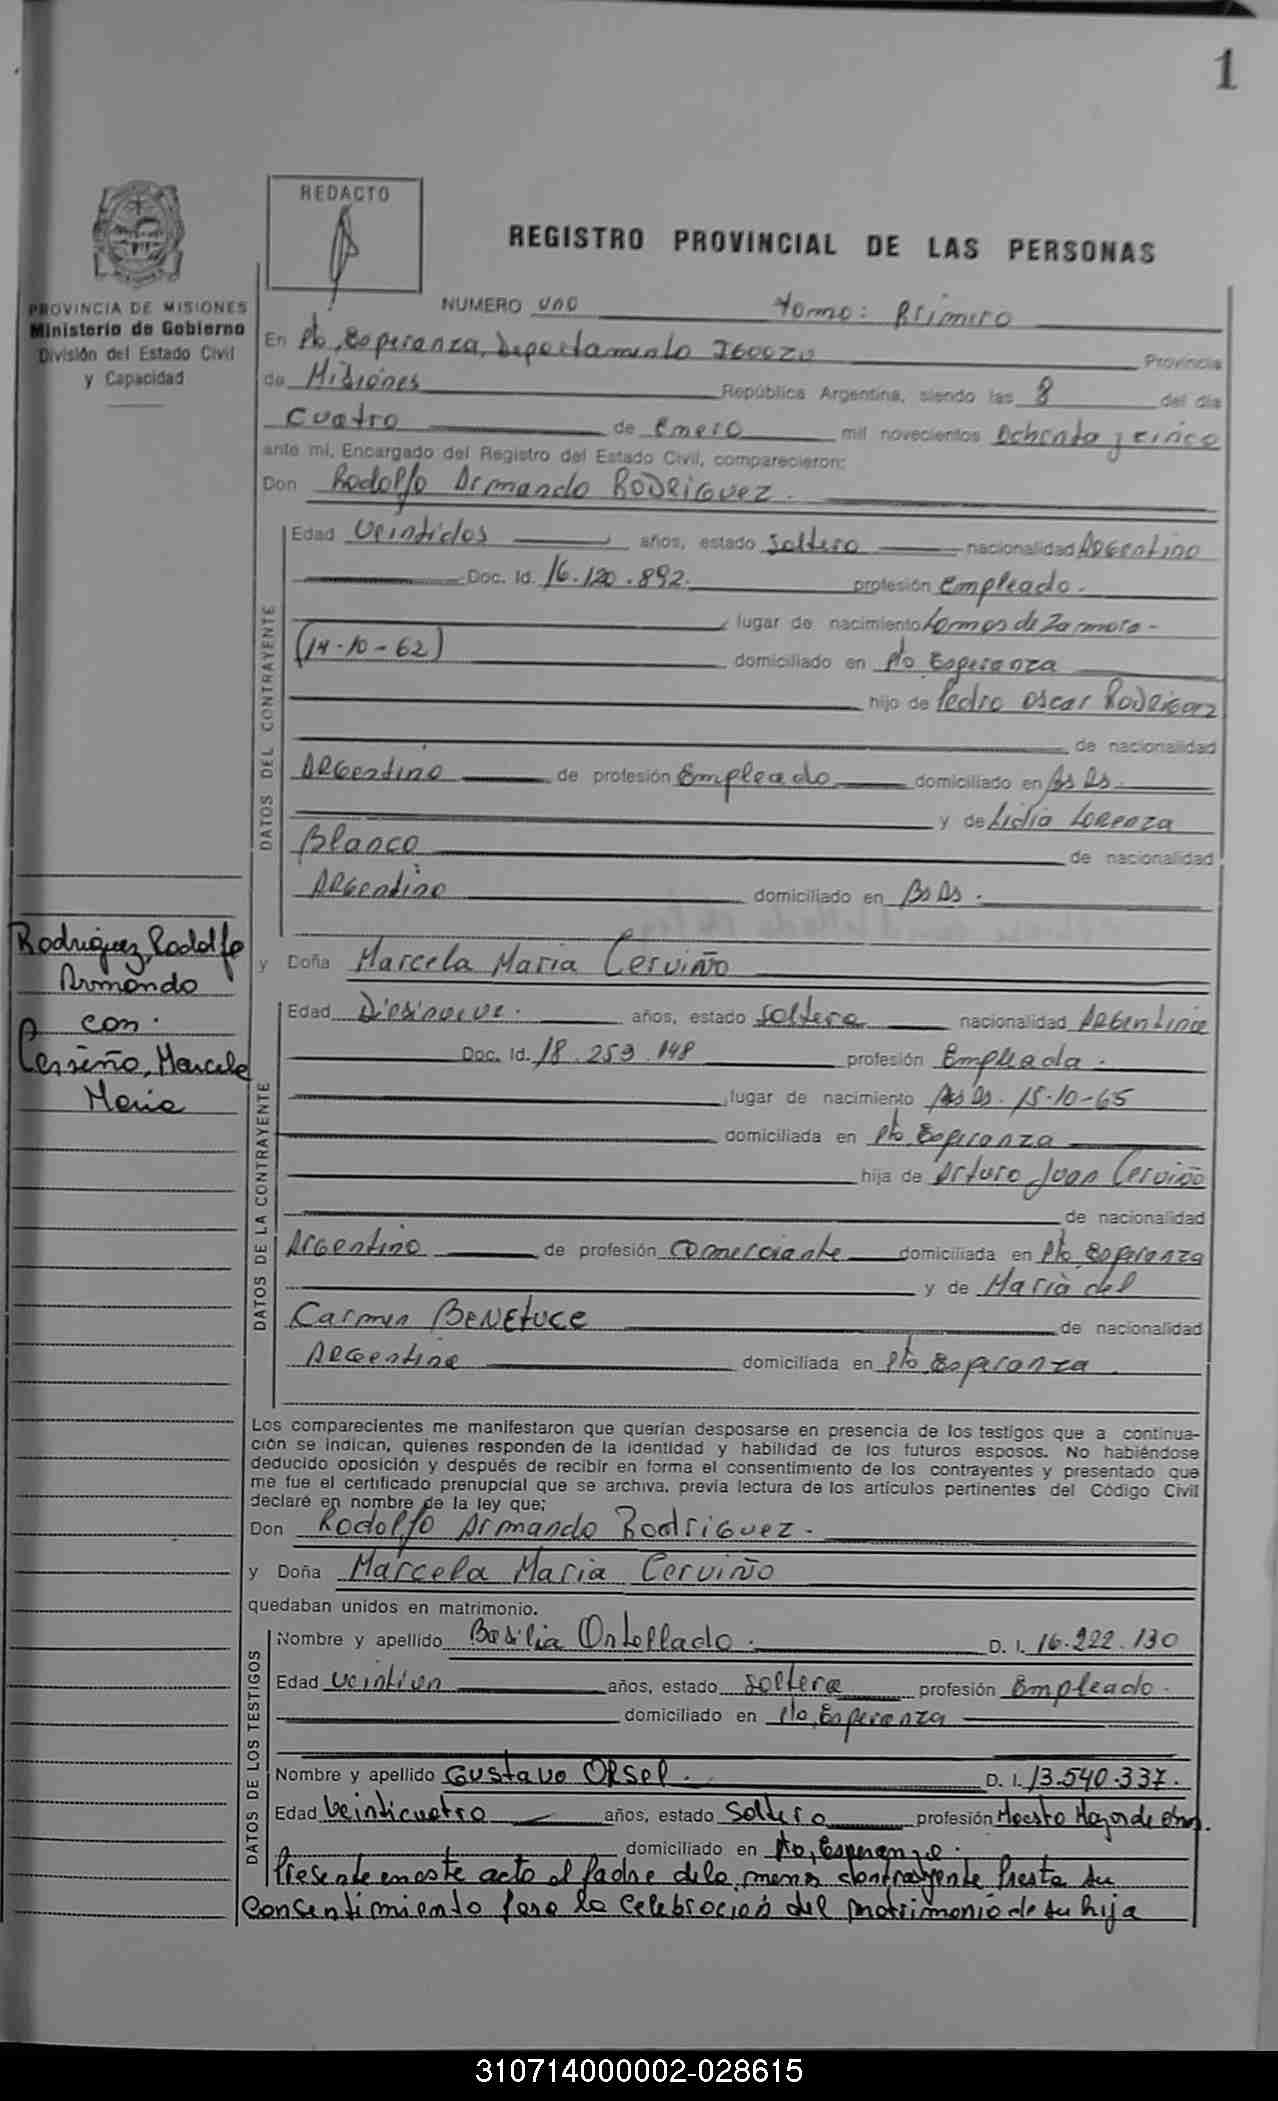 1
REDACTO
REGISTRO PROVINCIAL DE LAS PERSONAS
PROVINCIA DE MISIONES
Ministerio de Gobierno
División del Estado Civil
y Capacidad
NUMERO uno tomo: Primero
En Pto, Esperanza, Departamento Iguazu Provincia
de Misiones República Argentina, siendo las 8 del día
cuatro de Enero mil novecientos ochenta y cinco
ante mí, Encargado del Registro del Estado Civil, comparecieron:
Don Rodolfo Armando RODRIGUEZ.
DATOS DEL CONTRAYENTE
Edad veintidos años, estado soltero nacionalidad Argentino
Doc. Id. 16.120.892. profesión Empleado.
lugar de nacimiento Lomas de Zamora-
(14-10-62) domiciliado en Pto Esperanza
hijo de Pedro Oscar Rodriguez
de nacionalidad
Argentino de profesión Empleado domiciliado en Bs As.
y de Lidia Lorenza
Blanco de nacionalidad
Argentino domiciliado en Bs As.
Rodriguez, Rodolfo
Armando
con.
Cerviño, Marcela
Maria
y Doña Marcela Maria Cerviño
DATOS DE LA CONTRAYENTE
Edad Diesinueve. años, estado soltera nacionalidad Argentina
Doc. Id. 18.253.148 profesión Empleada.
lugar de nacimiento Bs As. 15-10-65
domiciliada en Pto Esperanza
hija de Arturo Juan Cerviño
de nacionalidad
Argentino de profesión comerciante domiciliada en Pto Esperanza
y de Maria del
Carmen BENETUCE de nacionalidad
Argentina domiciliada en Pto Esperanza
Los comparecientes me manifestaron que querían desposarse en presencia de los testigos que a continua-
ción se indican, quienes responden de la identidad y habilidad de los futuros esposos. No habiéndose
deducido oposición y después de recibir en forma el consentimiento de los contrayentes y presentado que
me fue el certificado prenupcial que se archiva, previa lectura de los artículos pertinentes del Código Civil
declaré en nombre de la ley que;
Don Rodolfo Armando Rodriguez.
y Doña Marcela Maria Cerviño
quedaban unidos en matrimonio.
DATOS DE LOS TESTIGOS
Nombre y apellido Basilia D. I. 16.222.130
Edad veintiun años, estado soltera profesión Empleado.
domiciliado en Pto, Esperanza
Nombre y apellido Gustavo ORSEL. D. I. 13.540.337.
Edad Veinticuatro años, estado soltero profesión Maestro Mayor de Obras.
domiciliado en Pto, Esperanza.
Presente en este acto el Padre de la menor contrayente Presta su
Consentimiento para la celebracion del matrimonio de su hija
310714000002-028615